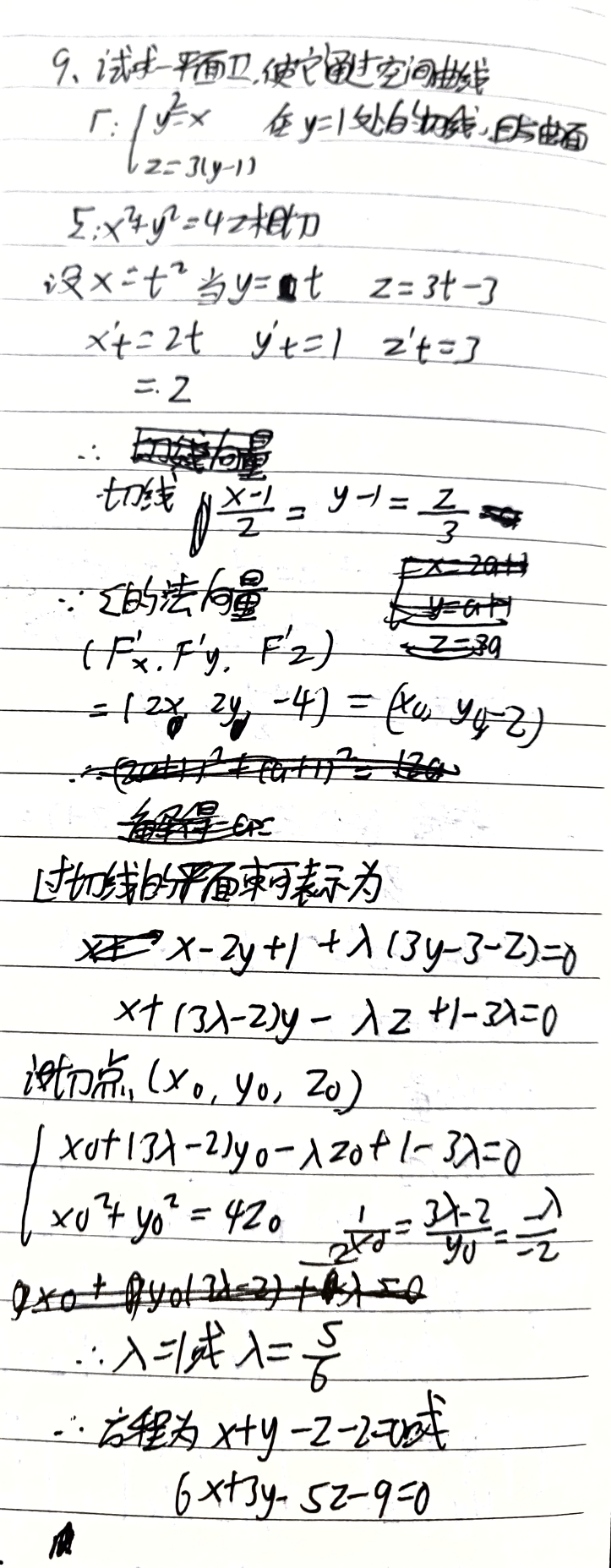 9、试求一平面π,使它通过空间曲线
Γ: { y²=x 在y=1处的切线,且与曲面
z=3(y-1)
Σ:x²+y²=4z相切
设x=t² 当y=t z=3t-3
x't=2t y't=1 z't=3
=2
∴
切线 (x-1)/2 = y-1 = z/3
∵ Σ的法向量
(F'x, F'y, F'z)
=(2x, 2y, -4) = (x₀, y₀, -2)
过切线的平面束可表示为
x-2y+1+λ(3y-3-z)=0
x+(3λ-2)y-λz+1-3λ=0
设切点(x₀, y₀, z₀)
{ x₀+(3λ-2)y₀-λz₀+1-3λ=0
x₀²+y₀²=4z₀ 1/x₀ = (3λ-2)/y₀ = -λ/-2
∴λ=1或λ=5/6
∴方程为x+y-z-2=0或
6x+3y-5z-9=0